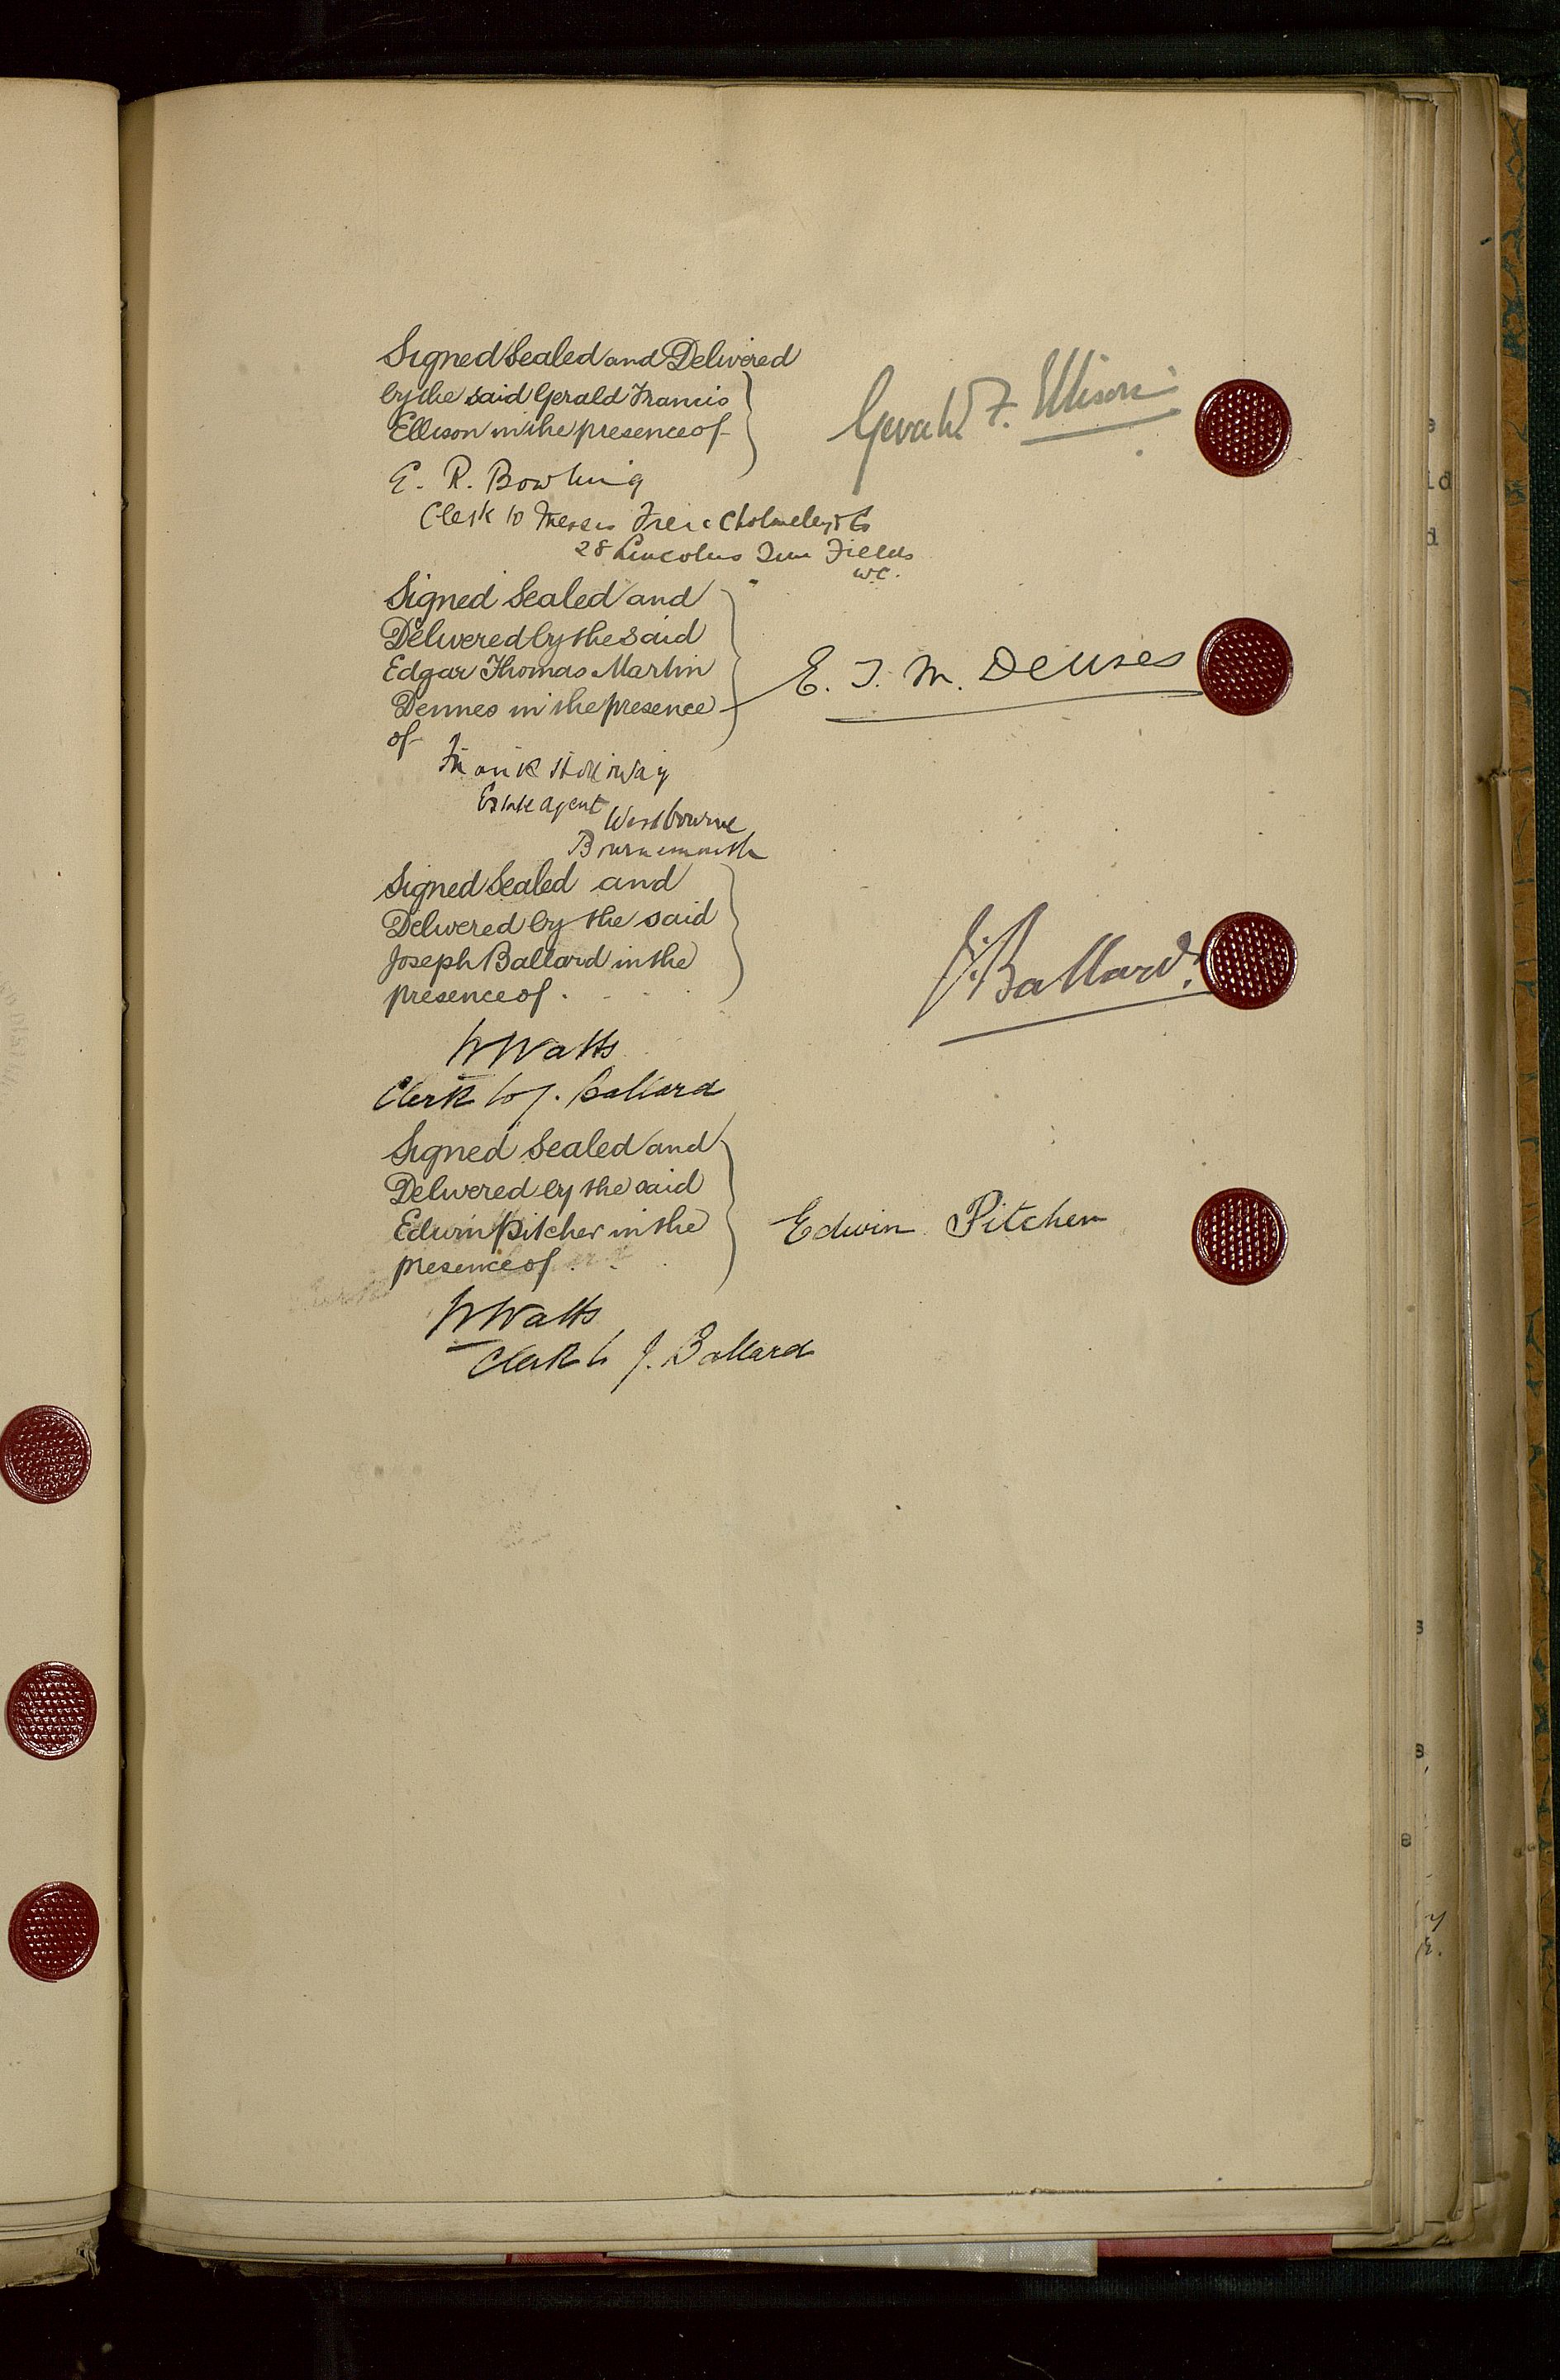 Signed Sealed and Delivered
by the said Gerald Francis
Ellison in the presence of
Gerald F. Ellison
E. R. Bowling
Clerk to Messrs Frere Cholmeley & Co
28 Lincolns Inn Fields
W.C.
Signed Sealed and
Delivered by the said
Edgar Thomas Martin
Dennes in the presence
of
E. T. M. Dennes
Frank Holloway
Estate Agent
Westbourne
Bournemouth
Signed Sealed and
Delivered by the said
Joseph Ballard in the
presence of
J. Ballard.
W Watts
Clerk to J. Ballard
Signed Sealed and
Delivered by the said
Edwin Pitcher in the
presence of
Edwin Pitcher
W Watts
Clerk to J. Ballard